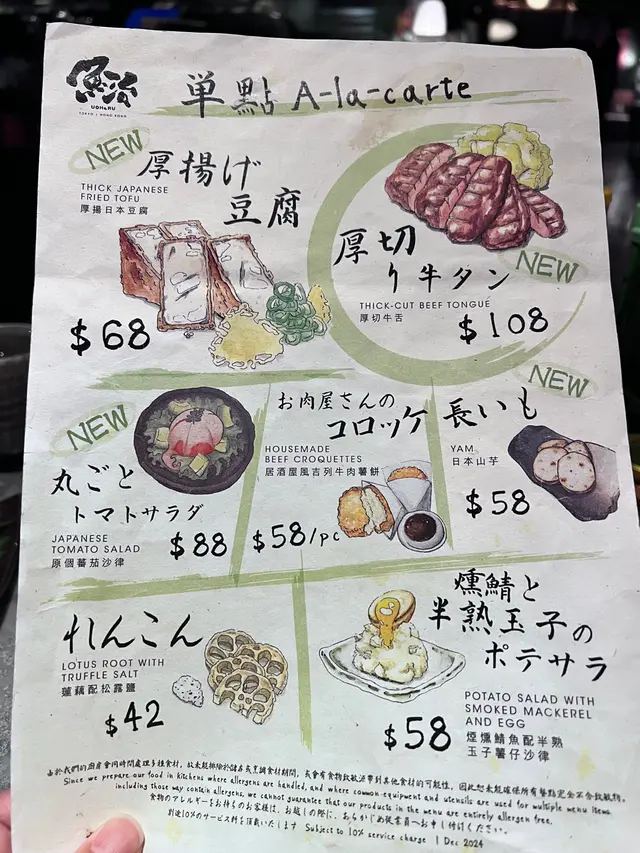 魚治
UOHARU
TOKYO | HONG KONG
単點 A-la-carte
NEW
厚揚げ
豆腐
THICK JAPANESE
FRIED TOFU
厚揚日本豆腐
$68
厚切
り牛タン
NEW
THICK-CUT BEEF TONGUE
厚切牛舌
$108
NEW
丸ごと
トマトサラダ
JAPANESE
TOMATO SALAD
原個蕃茄沙律
$88
お肉屋さんの
コロッケ
HOUSEMADE
BEEF CROQUETTES
居酒屋風吉列牛肉薯餅
$58/pc
NEW
長いも
YAM
日本山芋
$58
れんこん
LOTUS ROOT WITH
TRUFFLE SALT
蓮藕配松露鹽
$42
燻鯖と
半熟玉子の
ポテサラ
POTATO SALAD WITH
SMOKED MACKEREL
AND EGG
煙燻鯖魚配半熟
玉子薯仔沙律
$58
由於我們的廚房會同時處理多種食材，故未能排除於儲存或烹調食材期間，或會有食物致敏源帶到其他食材的可能性，因此恕未能確保所有餐點完全不含致敏物。
Since we prepare our food in kitchens where allergens are handled, and where common equipment and utensils are used for multiple menu items.
including those may contain allergens, we cannot guarantee that our products in the menu are entirely allergen free.
食物のアレルギーをお持ちのお客様は、お越しの際に、あらかじめ従業員へお申し付けください。
別途10%のサービス料を頂戴いたします Subject to 10% service charge | Dec 2024